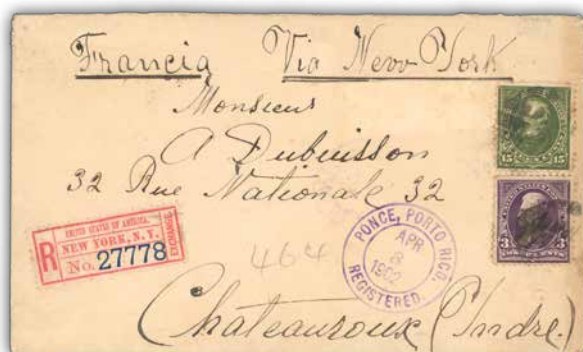 Francia Via New York
Monsieur
A Dubuisson
32 Rue Nationale 32
UNITED STATES OF AMERICA.
NEW YORK, N. Y.
R No. 27778
EXCHANGE
464
PONCE, PORTO RICO.
APR
8
1902
REGISTERED.
15 15
3
Chateauroux (Indre)